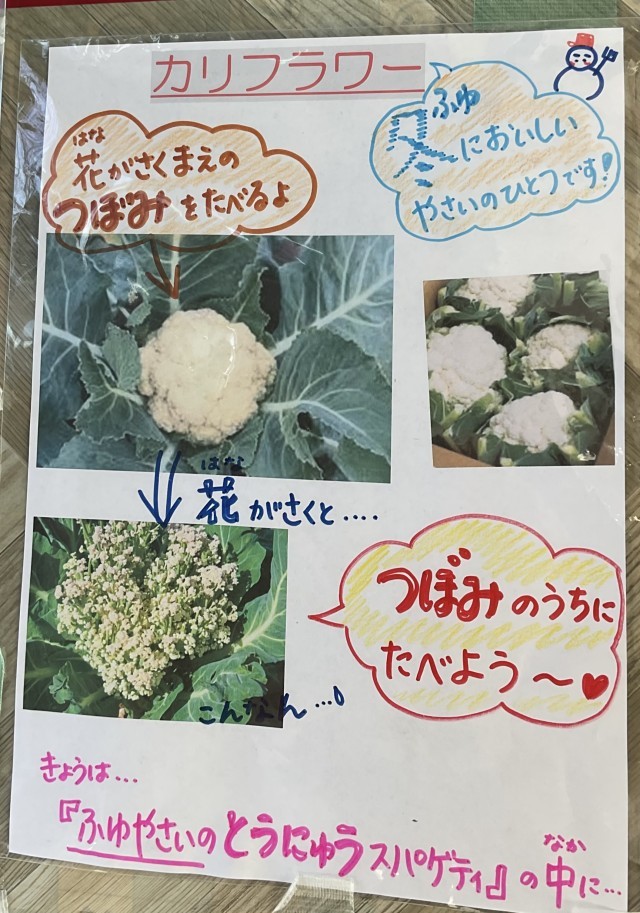 カリフラワー
はな
花がさくまえの
つぼみをたべるよ
ふゆ
冬においしい
やさいのひとつです!
はな
花がさくと....
つぼみのうちに
たべよう〜♥
こんなん...
きょうは...
『ふゆやさいのとうにゅうスパゲティ』の中に...
なか